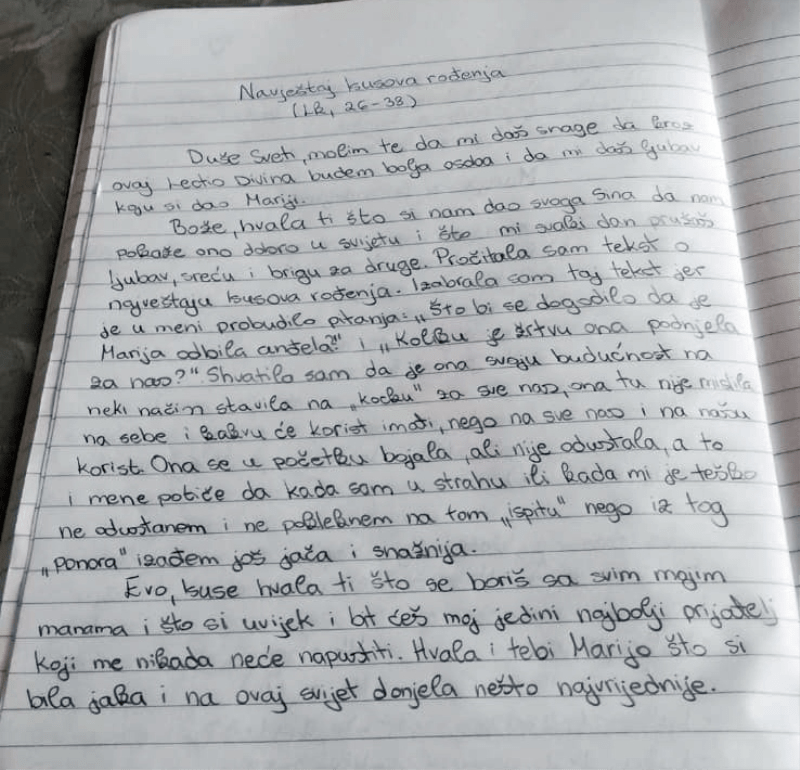 Navještaj Isusova rođenja
(Lk, 26-38)
Duše Sveti, molim te da mi daš snage da kroz
ovaj Lectio Divina budem bolja osoba i da mi daš ljubav
koju si dao Mariji.
Bože, hvala ti što si nam dao svoga Sina da nam
pokaže ono dobro u svijetu i što mi svaki dan pružaš
ljubav, sreću i brigu za druge. Pročitala sam tekst o
navještaju Isusova rođenja. Izabrala sam taj tekst jer
je u meni probudilo pitanja: „Što bi se dogodilo da je
Marija odbila anđela?" i „Koliku je žrtvu ona podnjela
za nas?". Shvatila sam da je ona svoju budućnost na
neki način stavila na „kocku" za sve nas, ona tu nije mislila
na sebe i kakvu će korist imati, nego na sve nas i na našu
korist. Ona se u početku bojala, ali nije odustala, a to
i mene potiče da kada sam u strahu ili kada mi je teško
ne odustanem i ne pokleknem na tom „ispitu" nego iz tog
„ponora" izađem još jača i snažnija.
Evo, Isuse hvala ti što se boriš sa svim mojim
manama i što si uvijek i bit ćeš moj jedini najbolji prijatelj
koji me nikada neće napustiti. Hvala i tebi Marijo što si
bila jaka i na ovaj svijet donjela nešto najvrijednije.